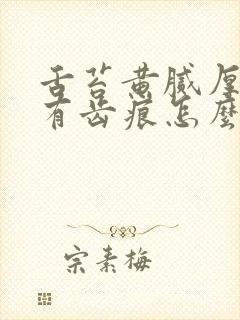 舌苔黄腻厚
有齿痕怎麽
宗素梅